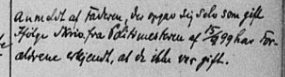 Anmeldt af Faderen, der opgav sig selv som gift
Ifølge Skriv. fra Politimesteren af 15/9 99 har For-
ældrene erkjendt, at de ikke var gift.